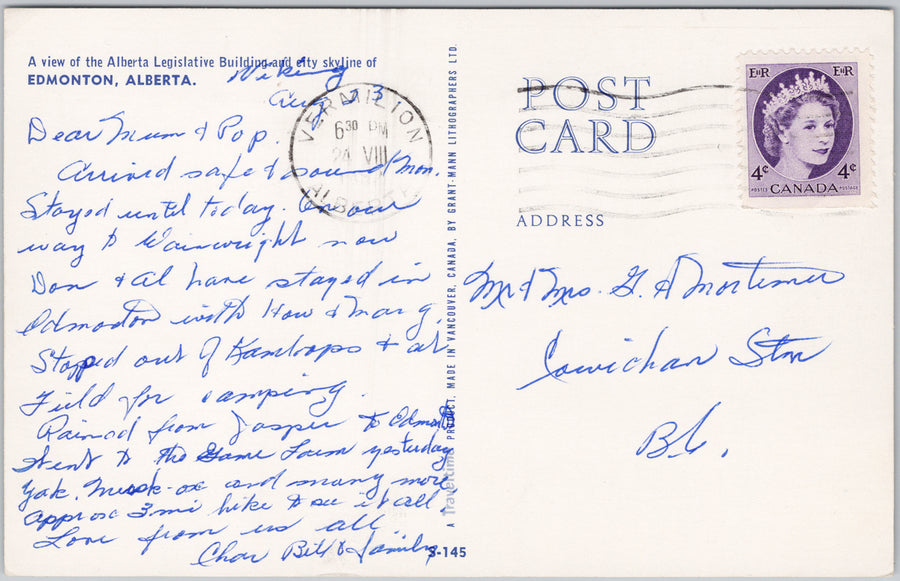 A view of the Alberta Legislative Building and city skyline of
EDMONTON, ALBERTA.
Viking
Aug 23
Dear Mum & Pop.
Arrived safe & sound Mon.
Stayed until today. On our
way to Wainwright now
Don & Al have stayed in
Edmonton with How & Marg.
Stopped out of Kamloops & at
Field for camping.
Rained from Jasper to Edmonton
Went to the Game Farm yesterday
Yak, Musk-ox and many more
approx 3 mi hike to see it all.
Love from us all
Char Bill & family
S-145
A Traveltime PRODUCT, MADE IN VANCOUVER, CANADA, BY GRANT-MANN LITHOGRAPHERS LTD.
VERMILION
6 30 PM
24 VIII
ALBERTA
POST
CARD
ADDRESS
EIIR EIIR
4¢ 4¢
POSTES CANADA POSTAGE
Mr & Mrs. G. A Mortimer
Cowichan Stn
B.C.